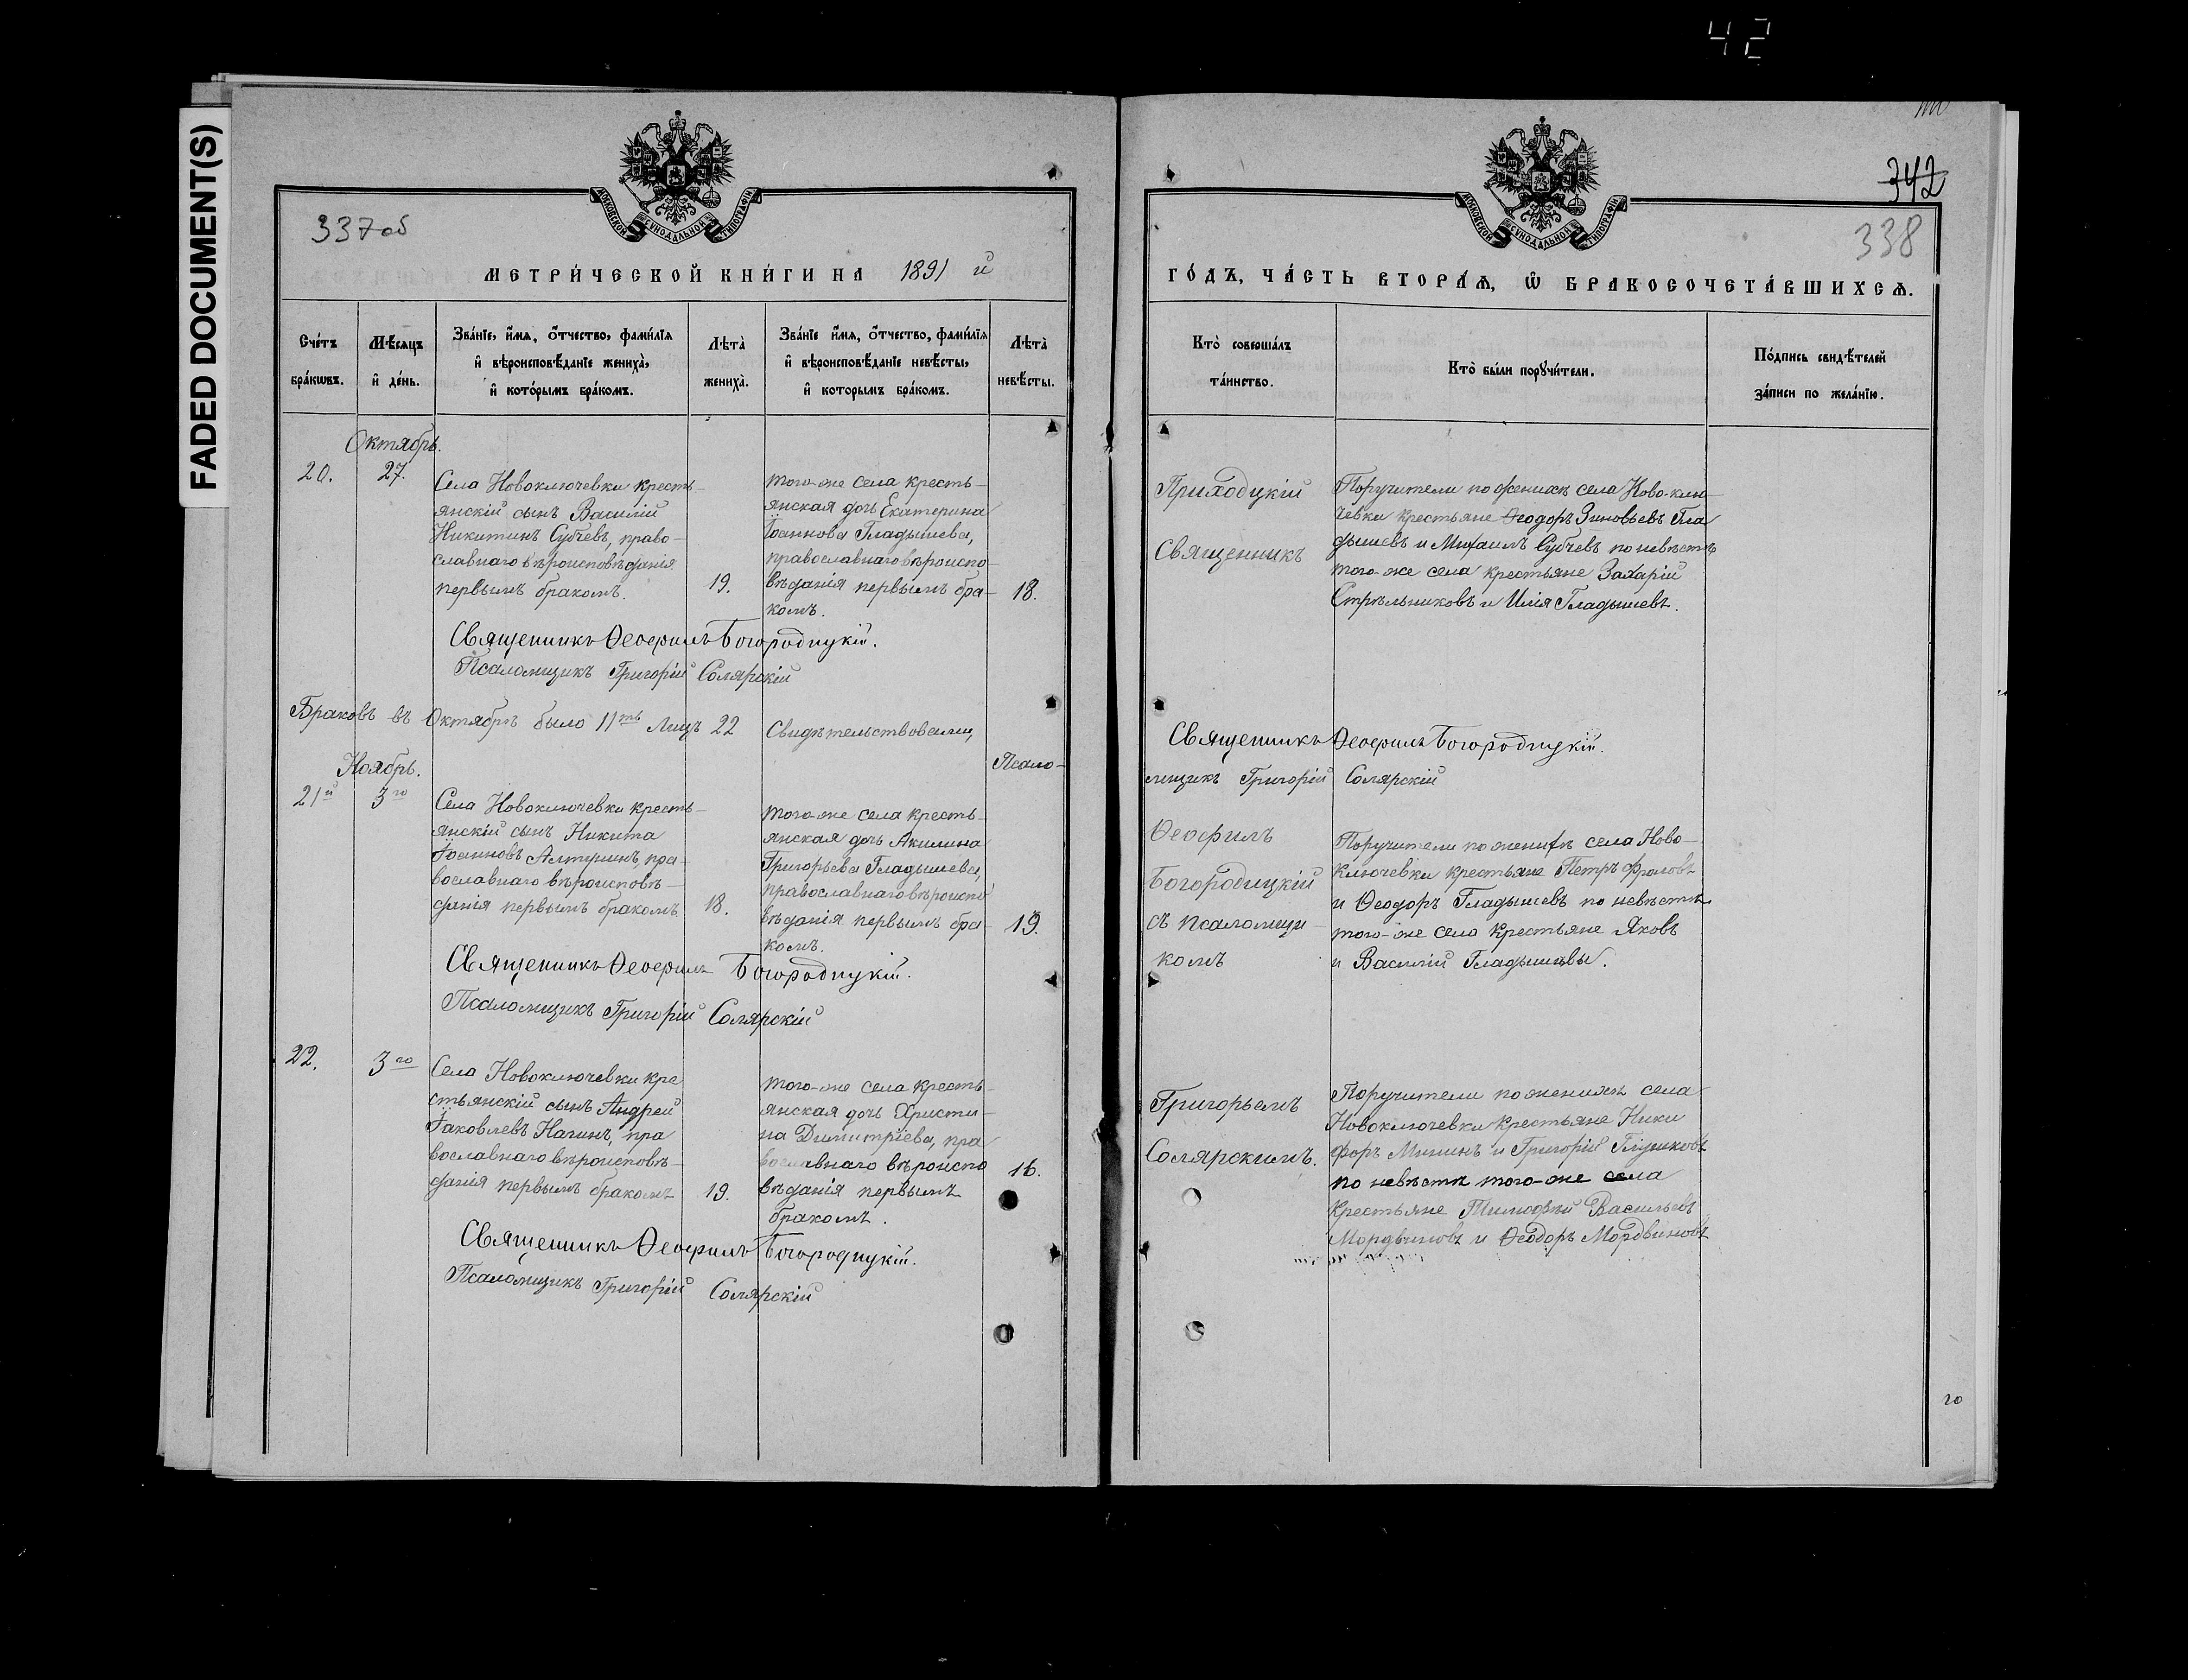 42
FADED DOCUMENT(S)
МОСКОВСКОЙ СУНОДАЛЬНОЙ ТИПОГРАФІИ
337 об
МЕТРИ́ЧЕСКОЙ КНИ́ГИ НА 1891 й
Сче́тъ бра́кωвъ.
Мѣ́сяцъ и҆ де́нь.
Зва́нїе, и҆́мя, ѻ҆́тчество, фами́лїя
и҆ вѣроисповѣ́данїе жениха̀,
и҆ кото́рымъ бра́комъ.
Лѣта̀ жениха̀.
Зва́нїе и҆́мя, ѻ҆́тчество, фами́лїя
и҆ вѣроисповѣ́данїе невѣ́сты,
и҆ кото́рымъ бра́комъ.
Лѣта̀ невѣ́сты.
Октябрь.
20. 27.
Села Новоключевки кресть-
янскій сынъ Василій
Никитинъ Субчевъ, право-
славнаго вѣроисповѣданія
первымъ бракомъ.
19.
того-же села кресть-
янская дочь Екатерина
Іоаннова Гладышева,
православнаго вѣроиспо-
вѣданія первымъ бра-
комъ.
18.
Священникъ Ѳеофилъ Богородицкій.
Псаломщикъ Григорій Солярскій
Браковъ въ Октябрѣ было 11ть Лицъ 22 Свидѣтельствовали,
Ноябрь.
Псало-
21й 3го
Села Новоключевки кресть-
янскій сынъ Никита
Іоанновъ Алтунинъ, пра-
вославнаго вѣроисповѣ-
данія первымъ бракомъ
18.
того-же села кресть-
янская дочь Акилина
Григорьева Гладышева,
православнаго вѣроиспо
вѣданія первымъ бра-
комъ.
19.
Священникъ Ѳеофилъ Богородицкій.
Псаломщикъ Григорій Солярскій
22. 3го
Села Новоключевки кре
стьянскій сынъ Андрей
Іаковлевъ Нагинъ, пра
вославнаго вѣроисповѣ-
данія первымъ бракомъ
19.
того-же села кресть-
янская дочь Христи-
на Димитріева, пра
вославнаго вѣроиспо
вѣданія первымъ
бракомъ.
16.
Священникъ Ѳеофилъ Богородицкій.
Псаломщикъ Григорій Солярскій
МОСКОВСКОЙ СУНОДАЛЬНОЙ ТИПОГРАФІИ
342
338
ГО́ДЪ, ЧА́СТЬ ВТОРА́Ѧ, Ѽ БРАКОСОЧЕТА́ВШИХСѦ.
Кто̀ соверша́лъ
та́инство.
Кто̀ бы́ли порꙋчи́тели.
По́дпись свидѣ́телей
за́писи по жела́нїю.
Приходцкій
Священникъ
Поручители по женихѣ села Ново-клю-
чевки крестьяне Ѳеодоръ Зиновьевъ Гла
дышевъ и Михаилъ Субчевъ по невѣстѣ
того-же села крестьяне Захарій
Стрѣльниковъ и Илія Гладышевъ.
Священникъ Ѳеофилъ Богородицкій.
мщикъ Григорій Солярскій
Ѳеофилъ
Богородицкій
съ псаломщи-
комъ
Поручители по женихѣ села Ново-
ключевки крестьяне Петръ Фроловъ
и Ѳеодоръ Гладышевъ по невѣстѣ
того-же села крестьяне Яковъ
и Василій Гладышевы.
Григорьемъ
Солярскимъ.
Поручители по женихѣ села
Новоключевки крестьяне Ники
форъ Мининъ и Григорій Глушковъ
по невѣстѣ того-же села
крестьяне Тимоѳей Васильевъ
Мордвиновъ и Ѳеодоръ Мордвиновъ
го